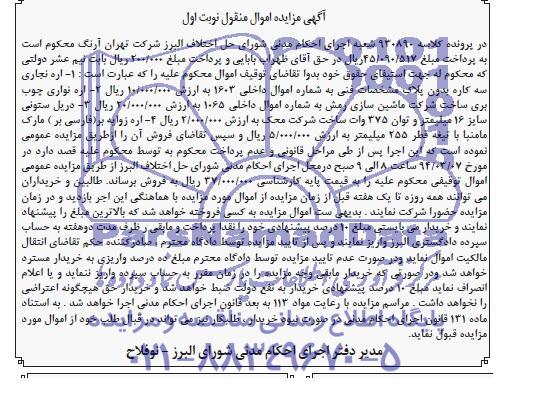 آگهی مزایده اموال منقول نوبت اول
در پرونده کلاسه ۹۳۰۸۹۰ شعبه اجرای احکام مدنی شورای حل اختلاف البرز شرکت تهران آرنگ محکوم است
به پرداخت مبلغ ۴۵/۰۹۰/۵۱۷ریال در حق آقای ظهراب بابایی و پرداخت مبلغ ۲۰۰/۰۰۰ ریال بابت نیم عشر دولتی
که محکوم له جهت استیفای حقوق خود بدوا تقاضای توقیف اموال محکوم علیه را که عبارت است : ۱- اره نجاری
سه کاره بدون پلاک مشخصات فنی به شماره اموال داخلی ۱۶۰۳ به ارزش ۱۰/۰۰۰/۰۰۰ ریال ۲- اره نواری چوب
بری ساخت شرکت ماشین سازی رمش به شماره اموال داخلی ۱۰۶۵ به ارزش ۲۰/۰۰۰/۰۰۰ ریال ۳- دریل ستونی
سایز ۱۶ میلیمتر و توان ۳۷۵ وات ساخت شرکت محک به ارزش ۲/۰۰۰/۰۰۰ ریال ۴- اره زوایه بر(فارسی بر ) مارک
مامنبا با تیغه قطر ۲۵۵ میلیمتر به ارزش ۵/۰۰۰/۰۰۰ ریال و سپس تقاضای فروش آن را ازطریق مزایده عمومی
نموده است که این اجرا پس از طی مراحل قانونی و عدم پرداخت محکوم به توسط محکوم علیه قصد دارد در
مورخ ۹۴/۰۲/۰۷ ساعت ۸ الی ۹ صبح درمحل اجرای احکام مدنی شورای حل اختلاف البرز از طریق مزایده عمومی
اموال توقیفی محکوم علیه را به قیمت پایه کارشناسی ۳۷/۰۰۰/۰۰۰ ریال به فروش برساند. طالبین و خریداران
می توانند همه روزه تا یک هفته قبل از زمان مزایده از اموال مورد مزایده با هماهنگی این اجرا بازدید و در زمان
مزایده حضورا شرکت نمایند . بدیهی ست اموال مزایده به کسی فروخته خواهد شد که بالاترین مبلغ را پیشنهاد
نمایند و خریدار می بایستی مبلغ ۱۰ درصد پیشنهادی خود را نقدا پرداخت و مابقی ظرف مدت دوهفته به حساب
سپرده دادگستری البرز واریز نمایند و پس از تایید مزایده توسط دادگاه محترم ، صادرکننده حکم تقاضای انتقال
مالکیت اموال نماید ودر صورت عدم تایید مزایده توسط دادگاه محترم مبلغ ده درصد واریزی به خریدار مسترد
خواهد شد و درصورتی که خریدار مابقی وجه مزایده را در زمان مقرر به حساب سپرده واریز ننماید و یا اعلام
انصراف نماید مبلغ ۱۰ درصد پیشنهادی خریدار به نفع دولت ضبط خواهد شد و خریدار حق هیچگونه اعتراضی
را نخواهد داشت . مراسم مزایده با رعایت مواد ۱۱۳ به بعد قانون اجرای احکام مدنی اجرا خواهد شد . به استناد
ماده ۱۳۱ قانون اجرای احکام مدنی در صورت نبود خریدار، طلبکار نیز می تواند در قبال طلب خود از اموال مورد
مزایده قبول نماید.
مدیر دفتر اجرای احکام مدنی شورای البرز – نوفلاح
پایگاه اطلاع رسانی مناقصه و مزایده
۰۲۱-۸۸۳۴۹۶۷۰-۵